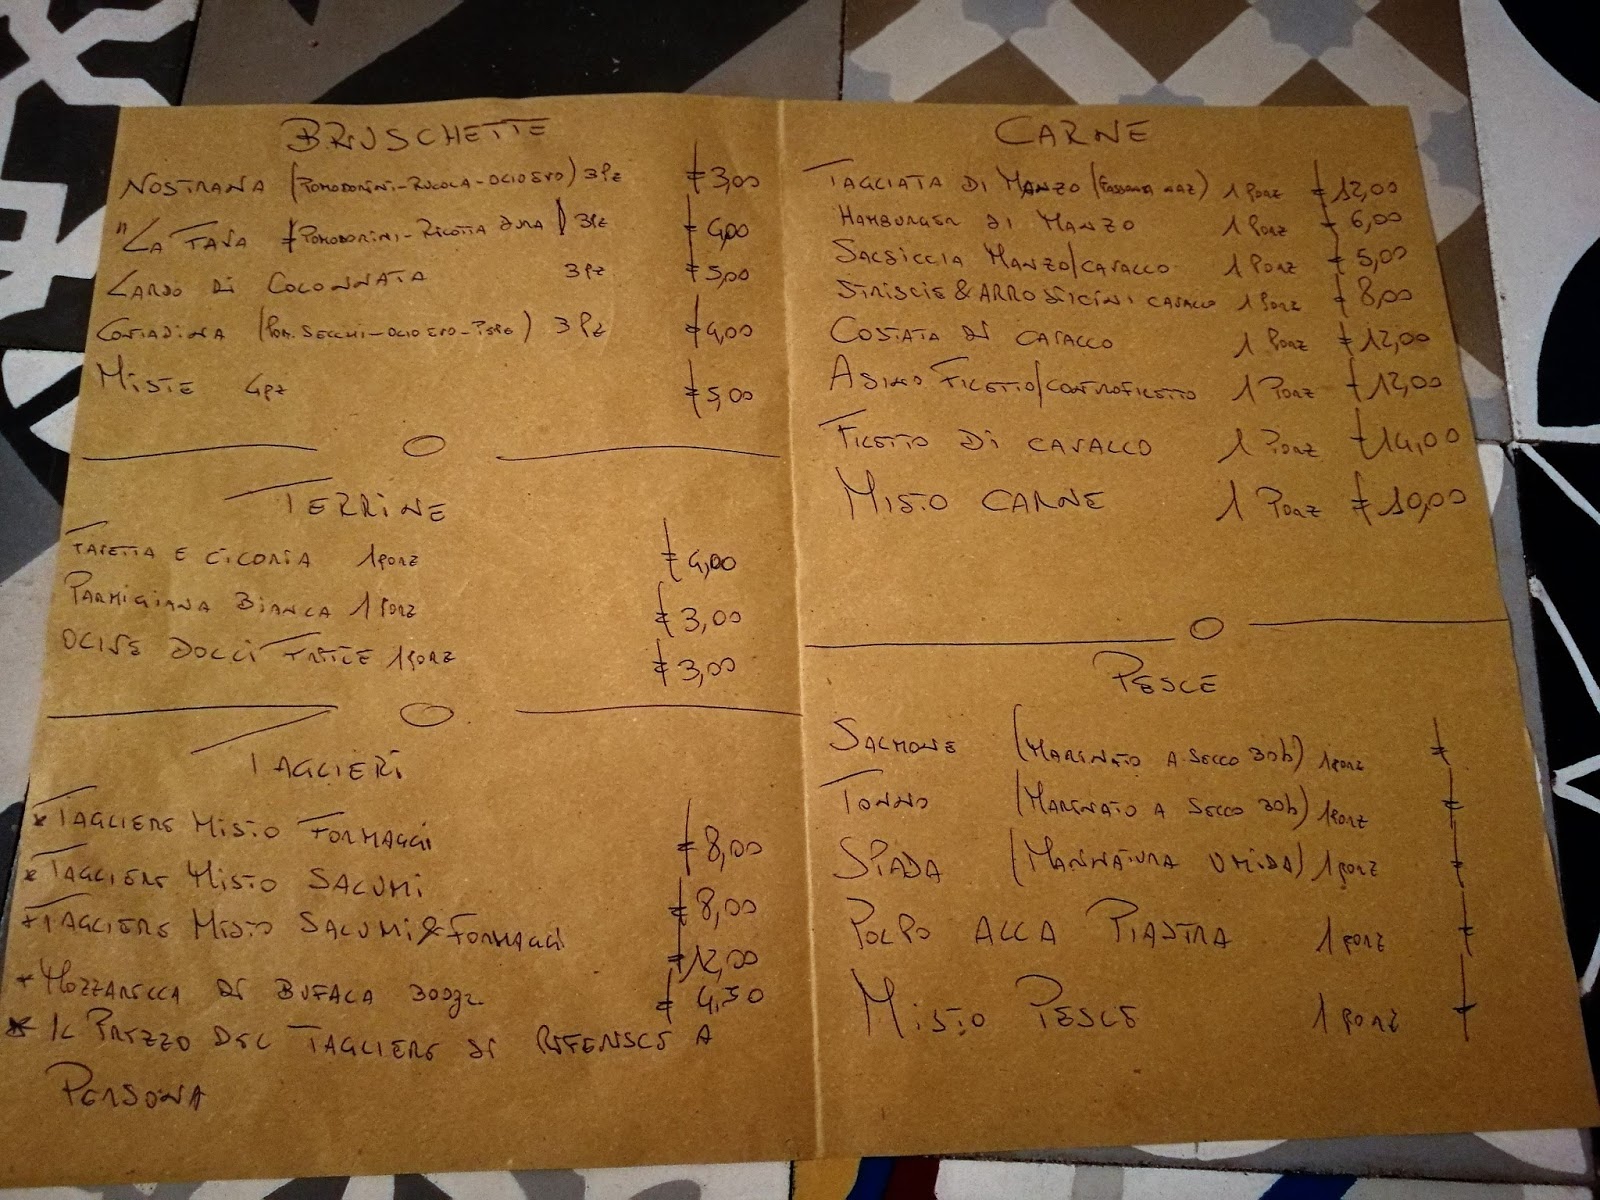 BRUSCHETTE
NOSTRANA (POMODORINI-RUCOLA-OLIO EVO) 3PZ € 3,00
"LA FAVA (POMODORINI-RICOTTA DURA) 3PZ € 4,00
LARDO DI COLONNATA 3PZ € 5,00
CONTADINA (POM. SECCHI-OLIO EVO-) 3PZ € 4,00
MISTE 4PZ € 5,00
TERRINE
FAVETTA E CICORIA 1 PORZ € 4,00
PARMIGIANA BIANCA 1 PORZ € 3,00
OLIVE DOLCI FRITTE 1 PORZ € 3,00
TAGLIERI
* TAGLIERE MISTO FORMAGGI € 8,00
* TAGLIERE MISTO SALUMI € 8,00
* TAGLIERE MISTO SALUMI & FORMAGGI € 12,00
* MOZZARELLA DI BUFALA 300gr € 4,50
* IL PREZZO DEL TAGLIERE SI RIFERISCE A
PERSONA
CARNE
TAGLIATA DI MANZO 1 PORZ € 12,00
HAMBURGER DI MANZO 1 PORZ € 6,00
SALSICCIA MANZO/CAVALLO 1 PORZ € 5,00
STRISCIE & ARROSTICINI CAVALLO 1 PORZ € 8,00
COSTATA DI CAVALLO 1 PORZ € 12,00
ASINO FILETTO/CONTROFILETTO 1 PORZ € 12,00
FILETTO DI CAVALLO 1 PORZ € 14,00
MISTO CARNE 1 PORZ € 10,00
PESCE
SALMONE (MARINATO A SECCO 30h) 1 PORZ €
TONNO (MARINATO A SECCO 30h) 1 PORZ €
SPADA (MARINATURA UMIDA) 1 PORZ €
POLPO ALLA PIASTRA 1 PORZ €
MISTO PESCE 1 PORZ €